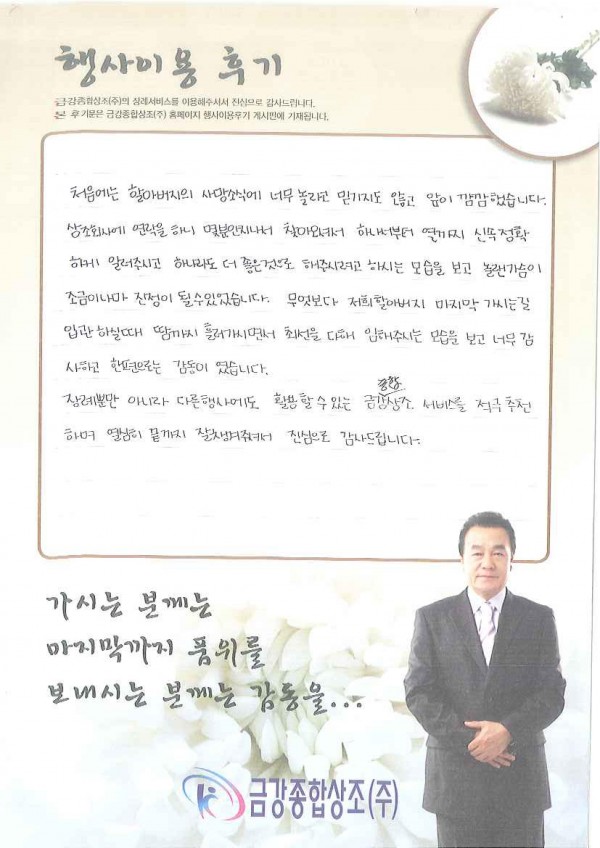 행사이용 후기
금강종합상조(주)의 장례서비스를 이용해주셔서 진심으로 감사드립니다.
본 후기문은 금강종합상조(주) 홈페이지 행사이용후기 게시판에 기재됩니다.
처음에는 할아버지의 사망소식에 너무 놀라고 믿기지도 않고 앞이 캄캄했습니다.
상조회사에 연락을 하니 몇분안지나서 찾아오셔서 하나서부터 열까지 신속정확
하게 알려주시고 하나라도 더 좋은것으로 해주시려고 하시는 모습을 보고 놀란가슴이
조금이나마 진정이 될수있었습니다. 무엇보다 저희할아버지 마지막 가시는길
입관 하실때 땀까지 흘러가시면서 최선을 다해 임해주시는 모습을 보고 너무 감
사하고 한편으로는 감동이 였습니다.
종합
장례뿐만 아니라 다른행사에도 활용할수있는 금강상조 서비스를 적극 추천
하며 열심히 끝까지 잘챙겨주셔서 진심으로 감사드립니다.
가시는 분께는
마지막까지 품위를
보내시는 분께는 감동을...
금강종합상조(주)